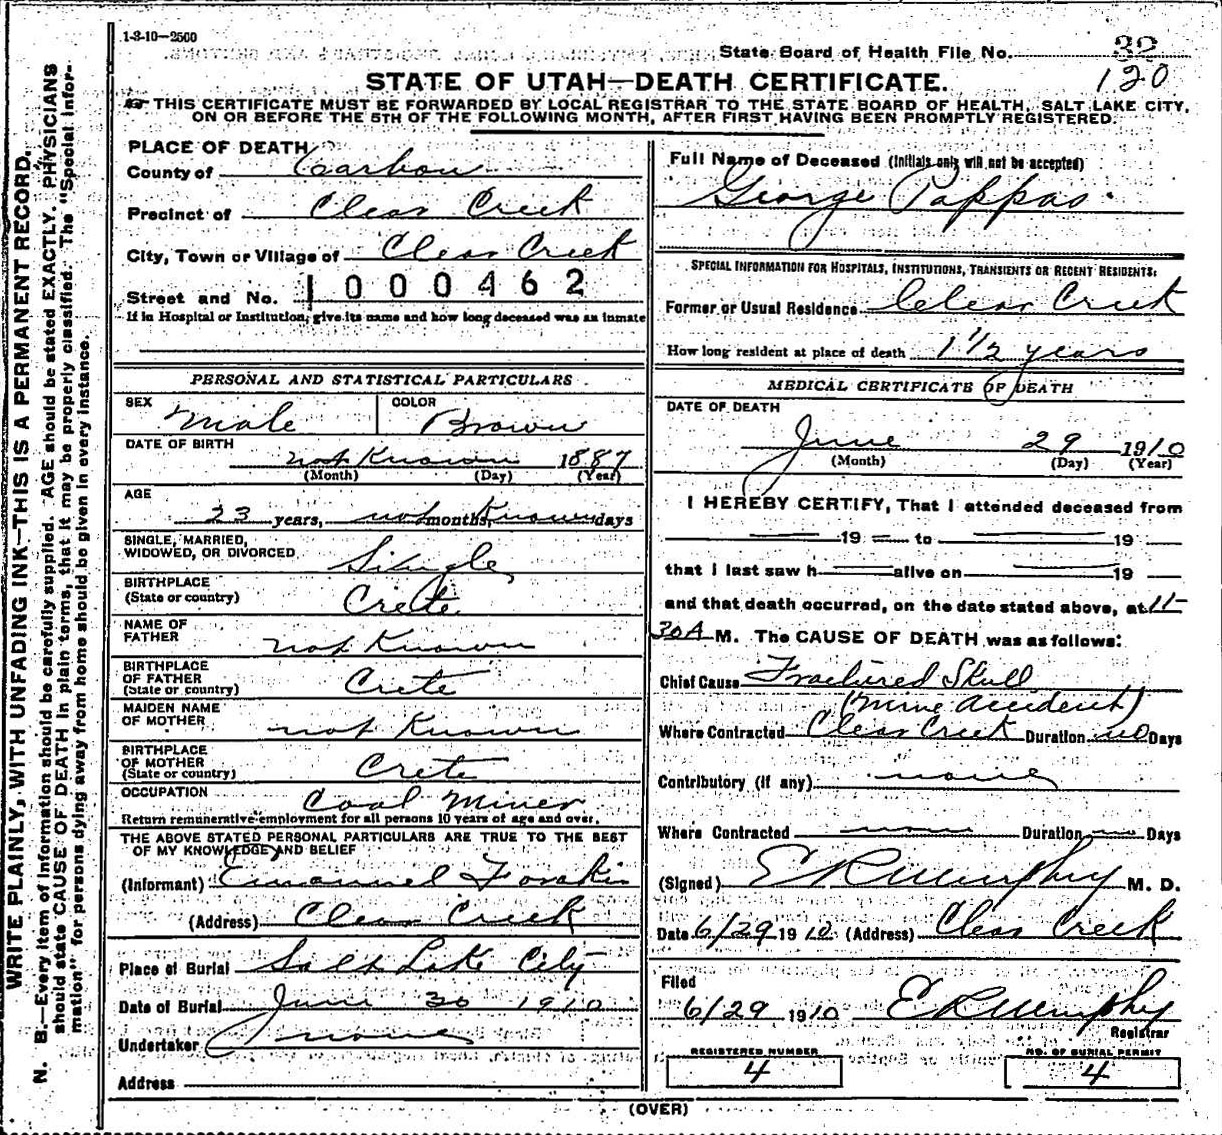 1-3-10—2500
State Board of Health File No. 32
120
STATE OF UTAH—DEATH CERTIFICATE.
THIS CERTIFICATE MUST BE FORWARDED BY LOCAL REGISTRAR TO THE STATE BOARD OF HEALTH, SALT LAKE CITY,
ON OR BEFORE THE 5TH OF THE FOLLOWING MONTH, AFTER FIRST HAVING BEEN PROMPTLY REGISTERED.
WRITE PLAINLY, WITH UNFADING INK—THIS IS A PERMANENT RECORD.
N. B.—Every item of information should be carefully supplied. AGE should be stated EXACTLY. PHYSICIANS
should state CAUSE OF DEATH in plain terms, that it may be properly classified. The "Special Infor-
mation" for persons dying away from home should be given in every instance.
PLACE OF DEATH
County of Carbon
Precinct of Clear Creek
City, Town or Village of Clear Creek
Street and No. 1000462
If in Hospital or Institution, give its name and how long deceased was an inmate
PERSONAL AND STATISTICAL PARTICULARS
SEX Male COLOR Brown
DATE OF BIRTH not Known 1887
(Month) (Day) (Year)
AGE
23 years, not months, Known days
SINGLE, MARRIED,
WIDOWED, OR DIVORCED Single
BIRTHPLACE
(State or country) Crete
NAME OF
FATHER not Known
BIRTHPLACE
OF FATHER
(State or country) Crete
MAIDEN NAME
OF MOTHER not Known
BIRTHPLACE
OF MOTHER
(State or country) Crete
OCCUPATION Coal Miner
Return remunerative employment for all persons 10 years of age and over.
THE ABOVE STATED PERSONAL PARTICULARS ARE TRUE TO THE BEST
OF MY KNOWLEDGE AND BELIEF
(Informant) Emanuel
(Address) Clear Creek
Place of Burial Salt Lake City
Date of Burial June 30 1910
Undertaker none
Address
Full Name of Deceased (Initials only will not be accepted)
George Pappas
SPECIAL INFORMATION FOR HOSPITALS, INSTITUTIONS, TRANSIENTS OR RECENT RESIDENTS:
Former or Usual Residence Clear Creek
How long resident at place of death 1 1/2 years
MEDICAL CERTIFICATE OF DEATH
DATE OF DEATH
June 29 1910
(Month) (Day) (Year)
I HEREBY CERTIFY, That I attended deceased from
19 to 19
that I last saw h alive on 19
and that death occurred, on the date stated above, at 11-
30A M. The CAUSE OF DEATH was as follows:
Chief Cause Fractured Skull
(Mine Accident)
Where Contracted Clear Creek Duration no Days
Contributory (if any) none
Where Contracted Duration Days
(Signed) E R Murphy M. D.
Date 6/29 1910 (Address) Clear Creek
Filed
6/29 1910 E R Murphy
Registrar
REGISTERED NUMBER
4
NO. OF BURIAL PERMIT
4
(OVER)